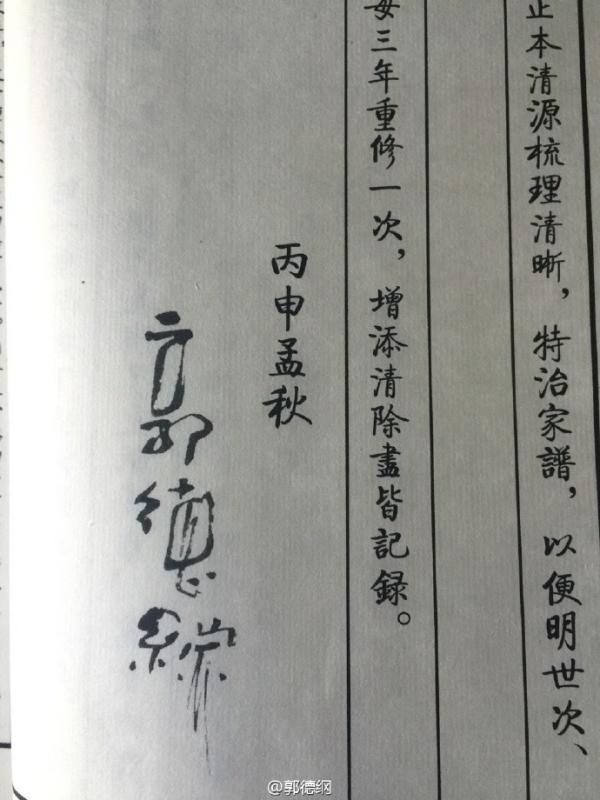 正本清源梳理清晰，特治家譜，以便明世次、
每三年重修一次，增添清除盡皆記録。
丙申孟秋
郭德綱
@郭德纲